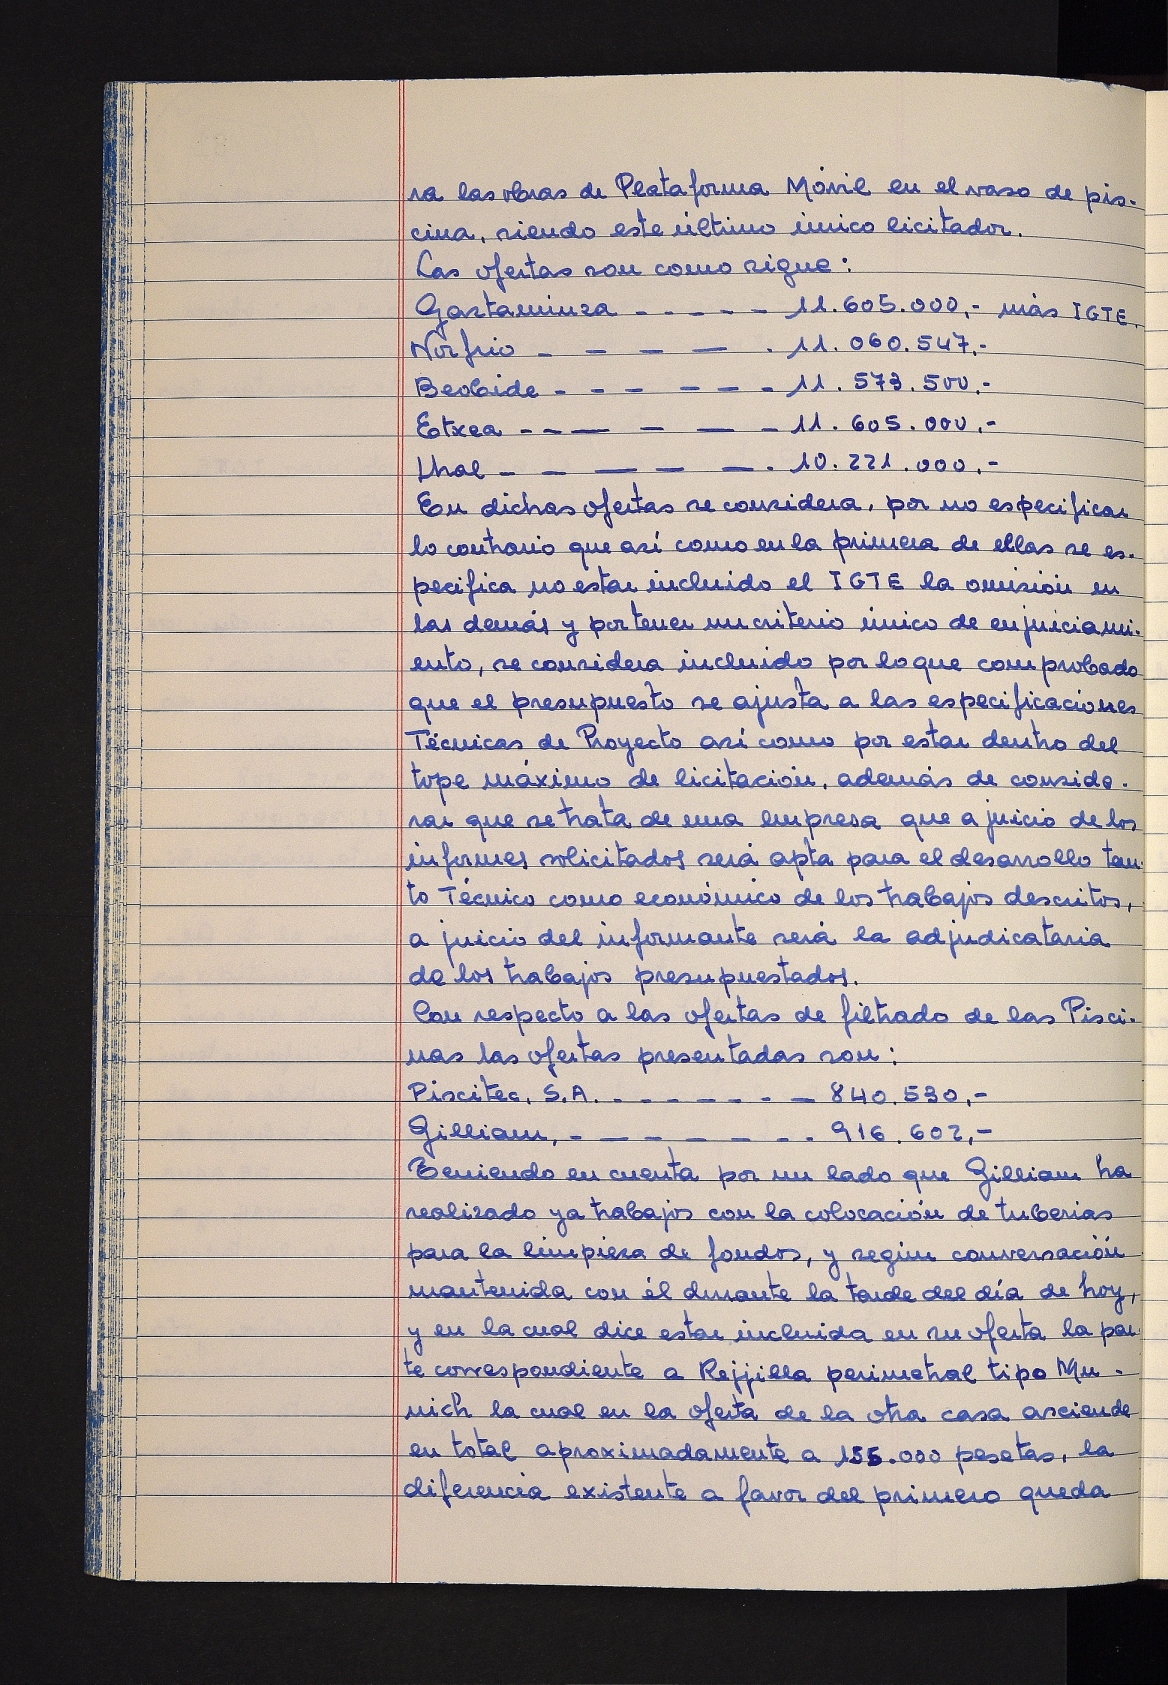 ra las obras de Plataforma Móvil en el vaso de pis-
cina, siendo este último único licitador.
Las ofertas son como sigue:
Gaztaminza - - - - - 11.605.000,- más IGTE.
Norfrio - - - - . 11.060.547.-
Beobide - - - - - - 11.573.500.-
Etxea - - - - - - 11.605.000.-
Lhal - - - - - . 10.221.000.-
En dichas ofertas se considera, por no especificar
lo contrario que así como en la primera de ellas se es-
pecifica no estar incluido el IGTE la omisión en
las demás y por tener un criterio único de enjuiciami-
ento, se considera incluido por lo que comprobado
que el presupuesto se ajusta a las especificaciones
Técnicas de Proyecto así como por estar dentro del
tope máximo de licitación, además de conside-
rar que se trata de una empresa que a juicio de los
informes solicitados será apta para el desarrollo tan-
to Técnico como económico de los trabajos descritos,
a juicio del informante será la adjudicataria
de los trabajos presupuestados.
Con respecto a las ofertas de filtrado de las Pisci-
nas las ofertas presentadas son:
Piscitec, S.A. - - - - - - - 840.530,-
Gilliam, - - - - - - - . 916.602,-
Teniendo en cuenta por un lado que Gilliam ha
realizado ya trabajos con la colocación de tuberias
para la limpieza de fondos, y según conversación
mantenida con él durante la tarde del día de hoy,
y en la cual dice estar incluida en su oferta la par-
te correspondiente a Rejjilla perimetral tipo Mu-
nich la cual en la oferta de la otra casa asciende
en total aproximadamente a 155.000 pesetas, la
diferencia existente a favor del primero queda